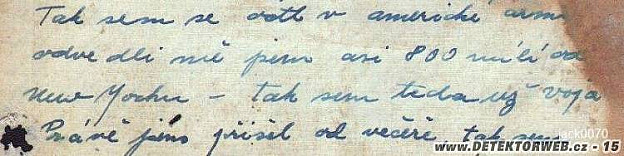 Tak sem se octl v americké armá
odvedli mě jsem asi 800 mílí od
New Yorku – tak sem teda už voja
Právě jsem přišel od večeře tak sem
jack0070
www.DETEKTORWEB.cz - 15